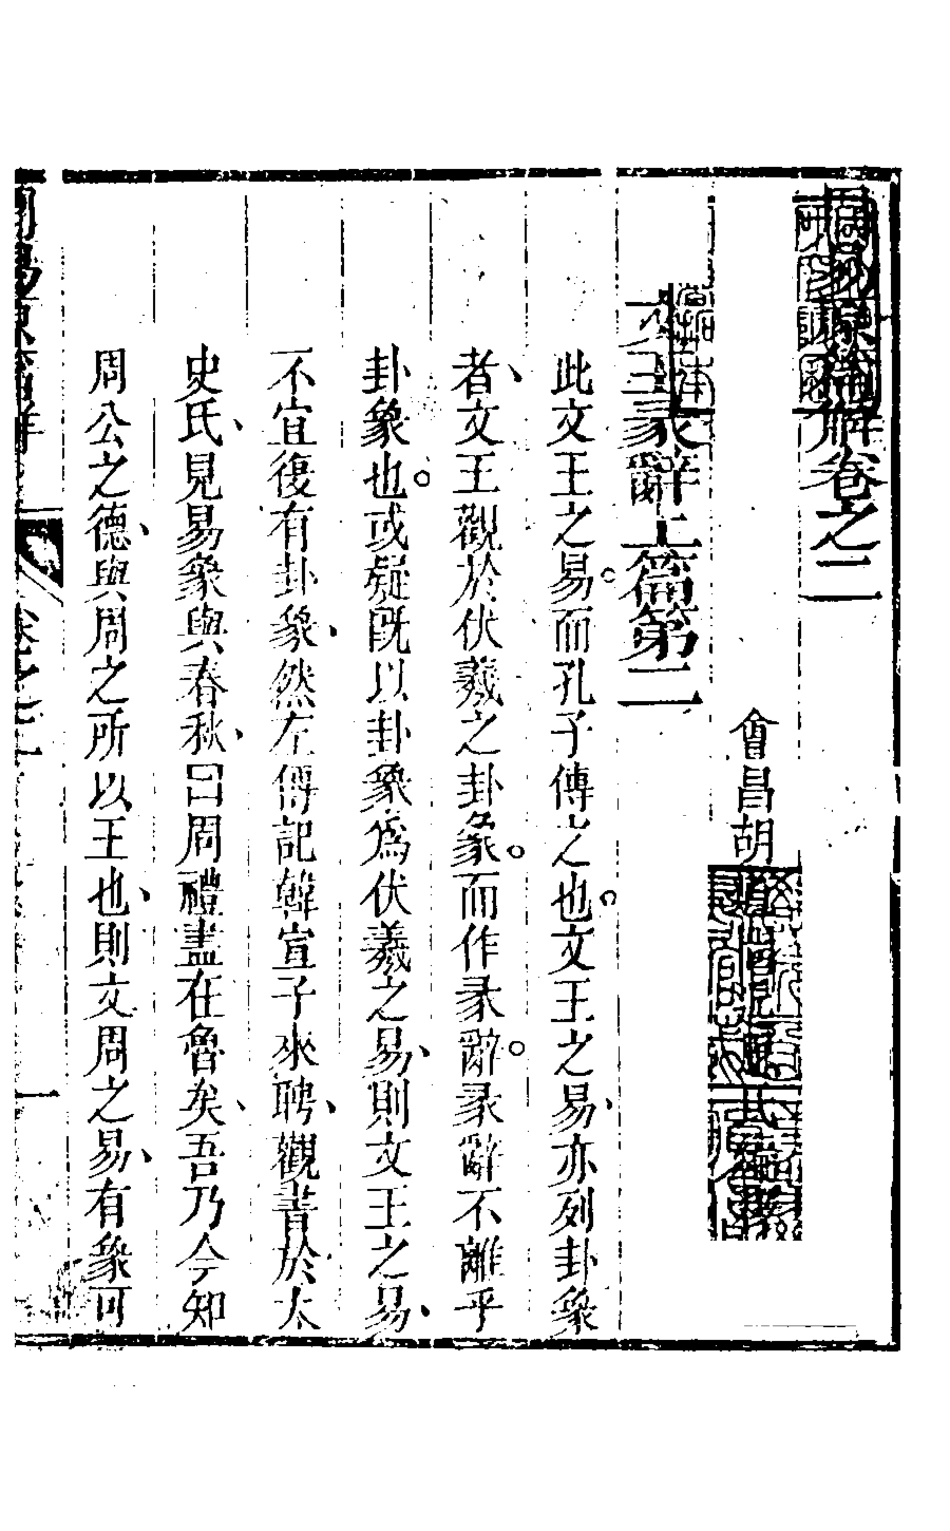 周易象論解卷之二
會昌胡
文王彖辭上篇第二
此文王之易而孔子傳之也文王之易亦列卦象
者文王觀於伏羲之卦象而作彖辭彖辭不離乎
卦象也或疑既以卦象爲伏羲之易則文王之易
不宜復有卦象然左傳記韓宣子來聘觀書於太
史氏見易象與春秋曰周禮盡在魯矣吾乃今知
周公之德與周之所以王也則文周之易有象可
卷之二
一